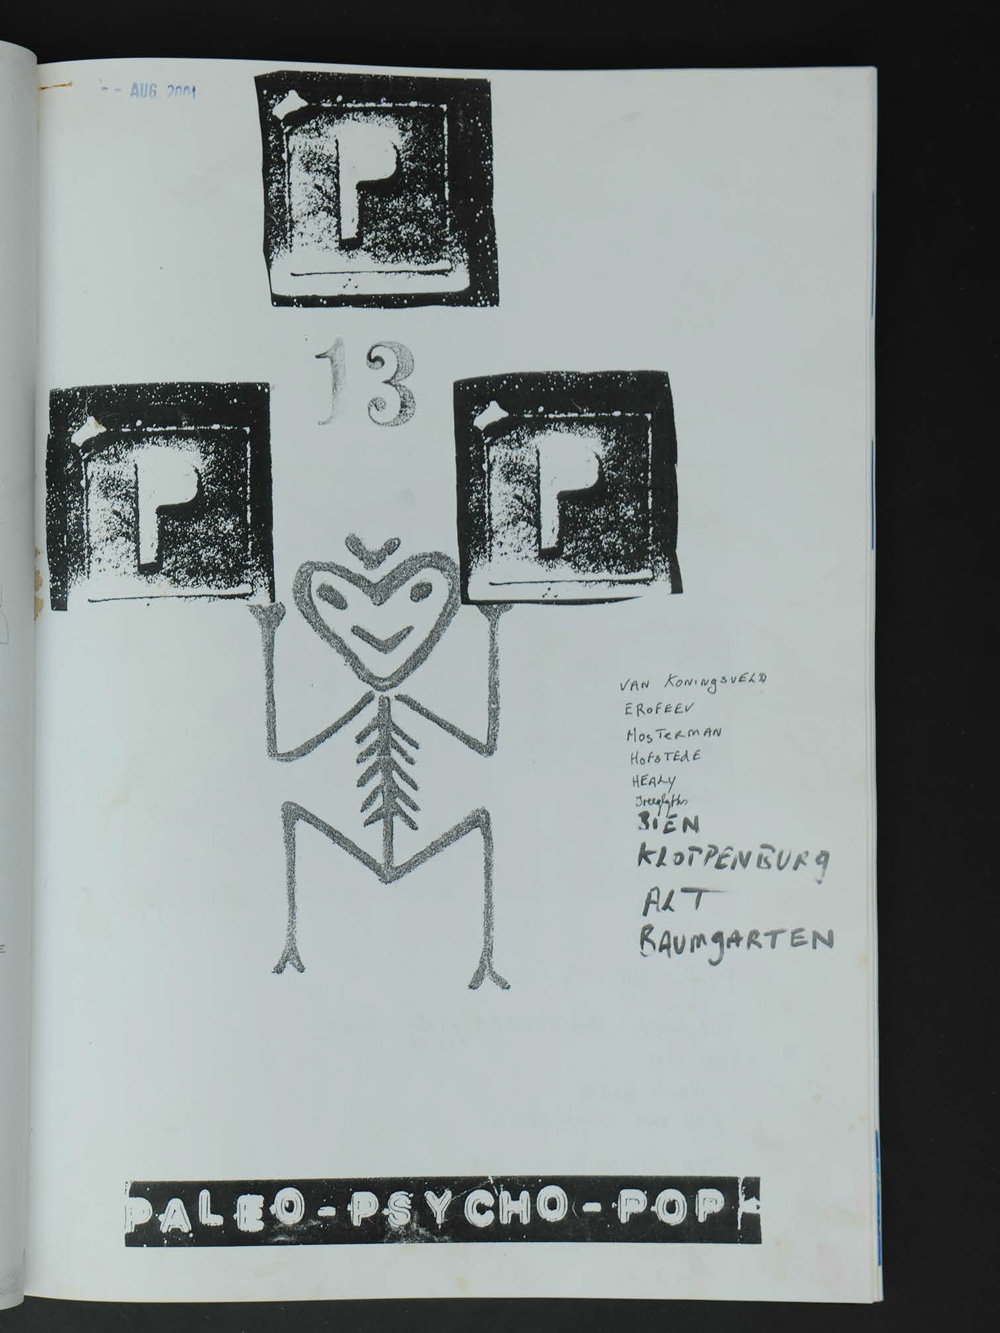 -- AUG. 2001
P
13
P P
VAN KONINGSVELD
EROFEEV
MOSTERMAN
HOFSTEDE
HEALY
BIEN
KLOPPENBURG
ALT
BAUMGARTEN
PALEO-PSYCHO-POP